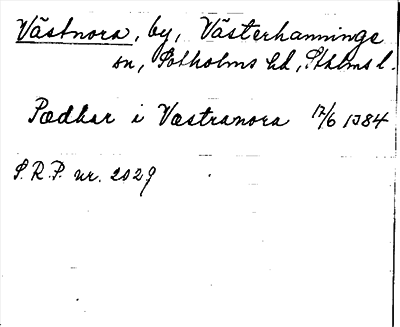 Västnora, by, Västerhanninge
sn, Sotholms hd, Sthlms l.
Pædhar i Væstranora 17/6 1384
S.R.P. nr. 2029